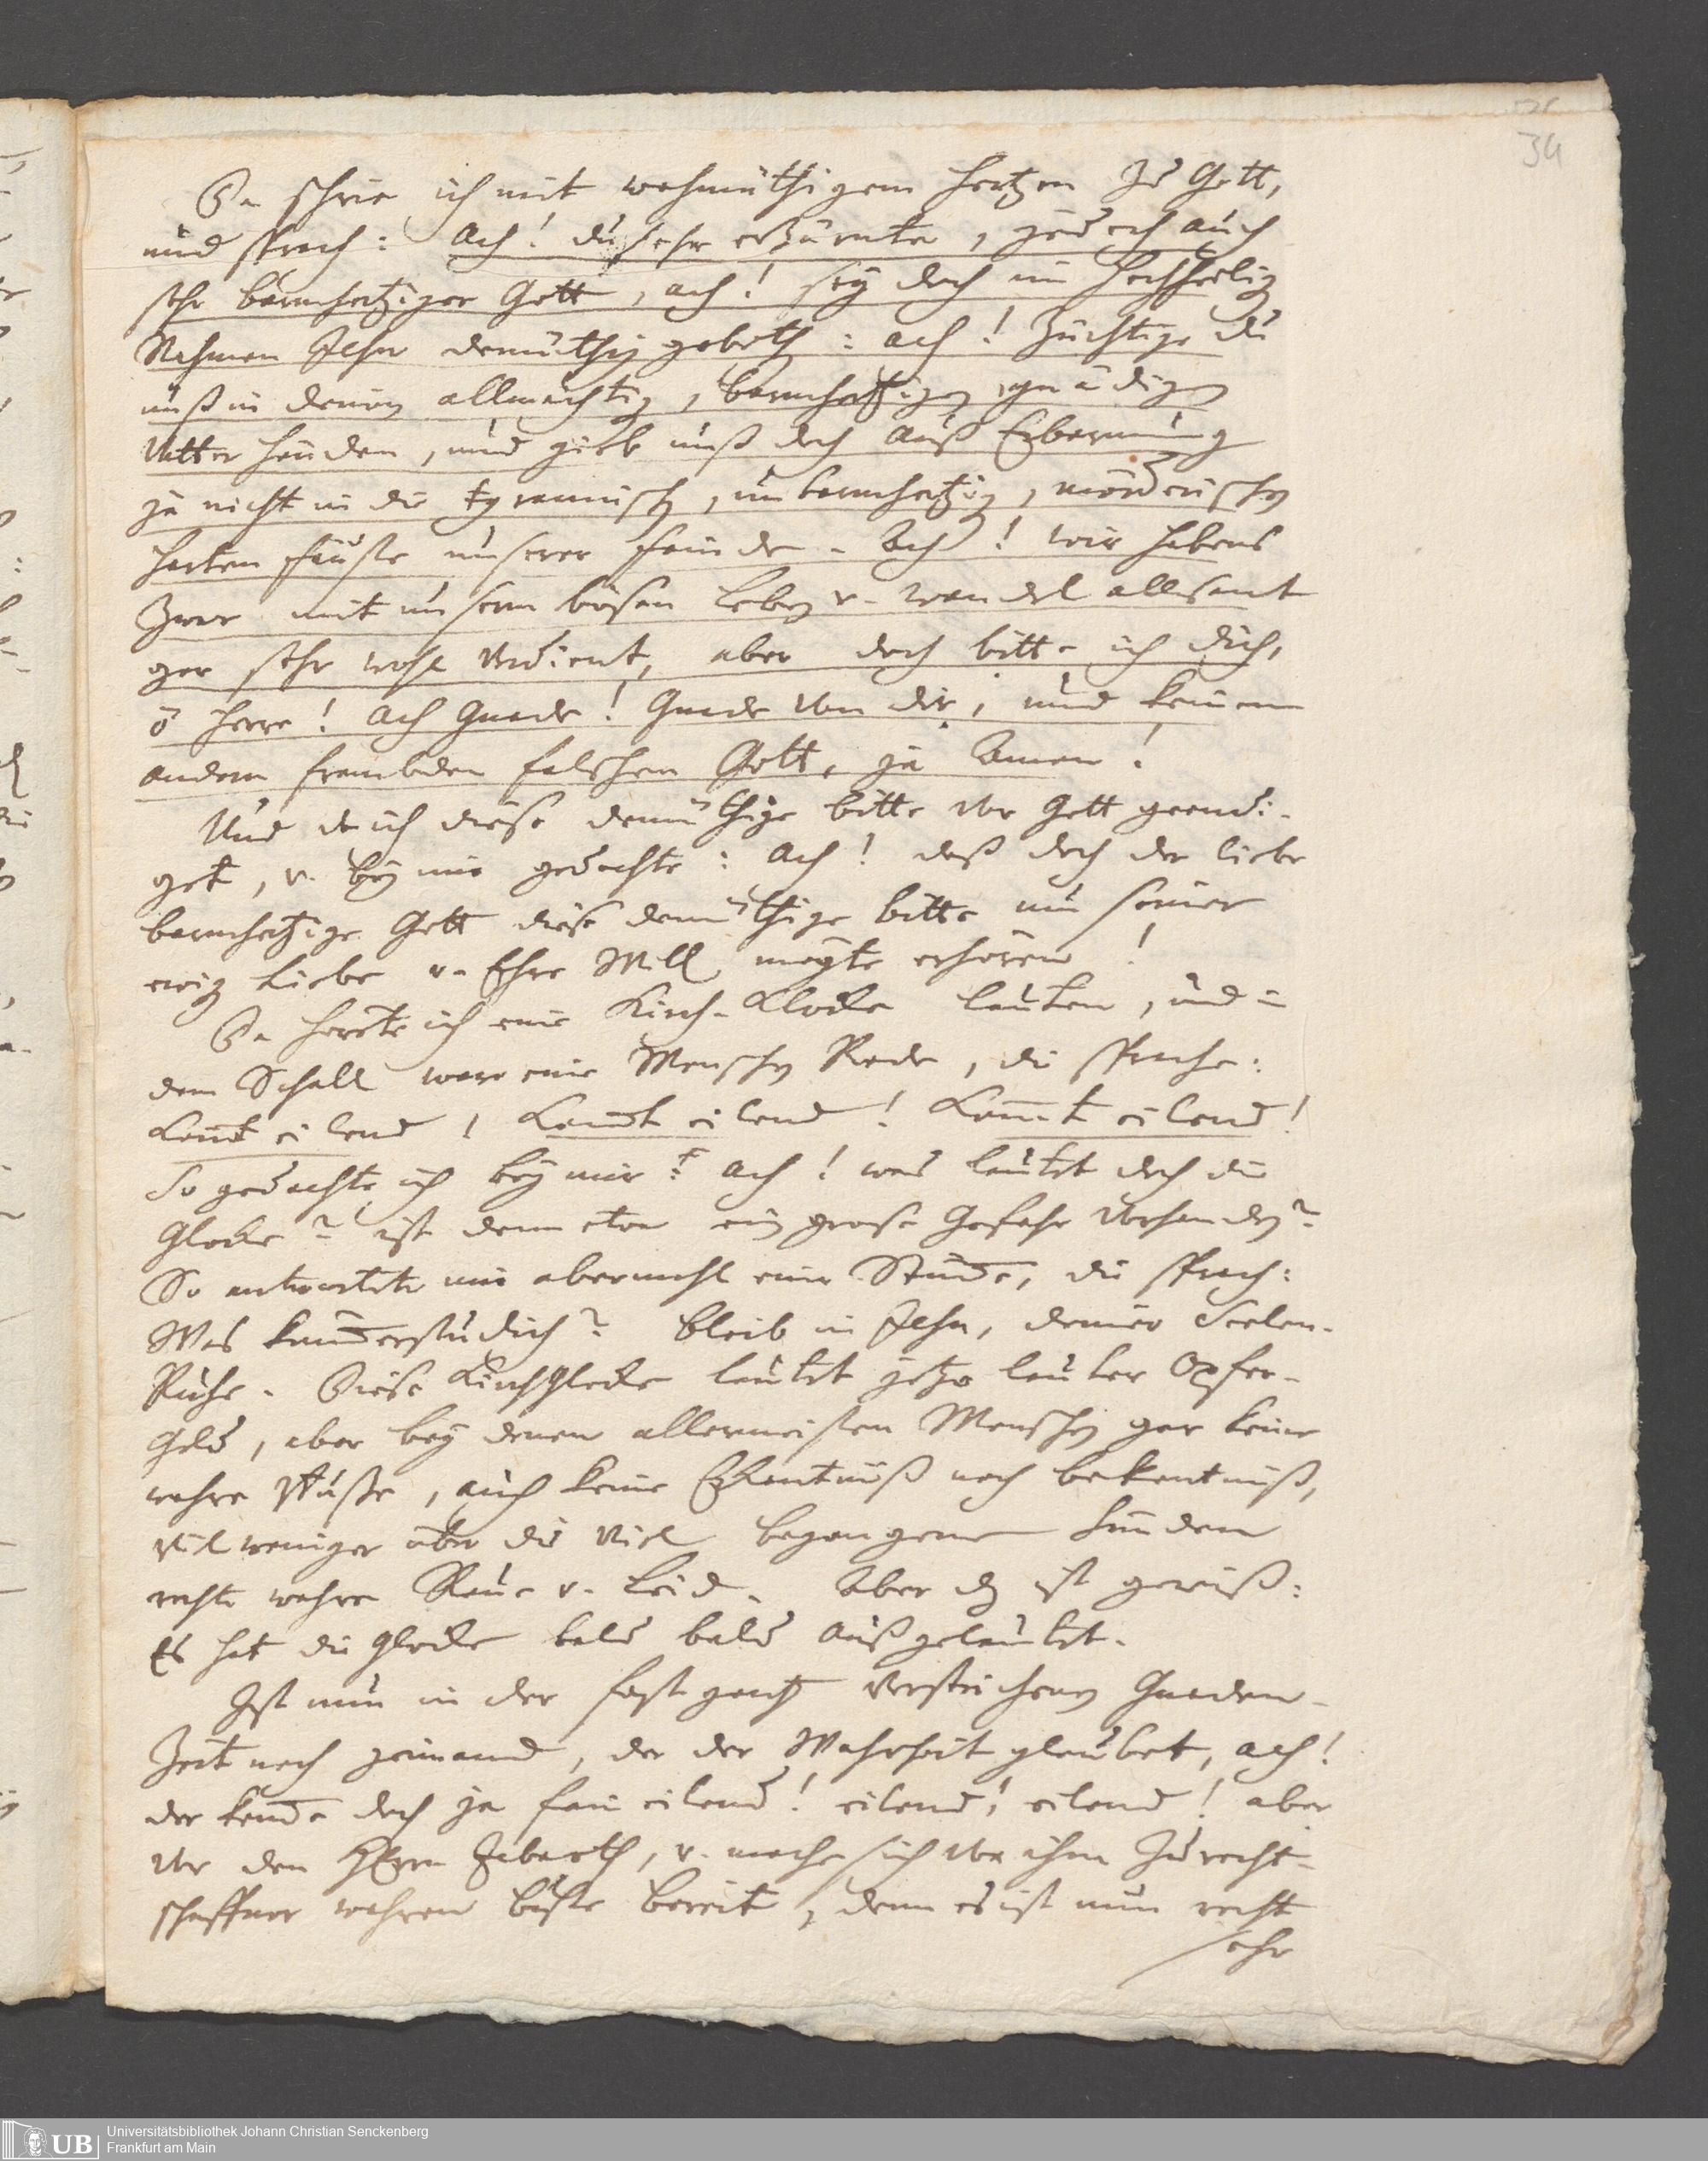 34
Da schrie ich mit wehmüthigem Hertzen zu Gott,
und sprach: Ach! du sehr erzürnter, jedoch auch
sehr barmhertziger Gott, ach! sey doch im hochheilig
Nahmen Jesu demüthig gebeth: ach! züchtige du
unß in deinen allmächtig, barmhertzigen, gnädigen
Vatter Händen, und gieb unß doch auß Erbarmung
ja nicht in die tyrannisch, unbarmhertzig, mörderischen
harten Fäuste unserer Feinde. Ach! wir habens
zwar mit unserm bösen Leben v. Wandel allesamt
gar sehr wohl verdient, aber doch bitte ich dich,
ô Herre! Ach Gnade! Gnade von dir, und keinem
andern frembden falschen Gott, ja Amen!
Und da ich diese demüthige bitte vor Gott geendi-
get, v. bey mir gedachte: Ach! daß doch der liebe
barmhertzige Gott diese demüthige bitte um seiner
ewig Liebe v. Ehre Will, mögte erhören!
Da horete ich eine Kirch-Klocke lauten, und in
dem Schall ware eine Menschen Rede, die sprache:
Komt eilend! Komt eilend! Komt eilend!
So gedachte ich bey mir: Ach! was lautet doch die
Glocke? ist denn etwa ein grose Gefahr vorhanden?
So antwortete mir abermahl eine Stimme, die sprach:
Was kümmerstu dich? bleib in Jesu, deiner Seelen-
Ruhe. Diese Kirchglocke lautet jetzo lauter Opfer-
Geld, aber bey denen allermeisten Menschen gar keine
wahre Buße, auch keine Erkantnüß noch bekentnüß,
viel weniger über die viel begangene Sünden
rechte wahre Reue v. Leid. Aber das ist gewiß:
Es hat die Glocke bald bald außgelautet.
Ist nun in der fast gantz verstrichenen Gnaden-
Zeit noch jemand, der der Wahrheit glaubet, ach!
der komme doch ja fein eilend! eilend! eilend! aber
vor den HErrn Zebaoth, v. mache sich vor ihm zu recht-
schaffner wahren buße bereit, denn es ist nun recht
sehr
UB Universitätsbibliothek Johann Christian Senckenberg
Frankfurt am Main